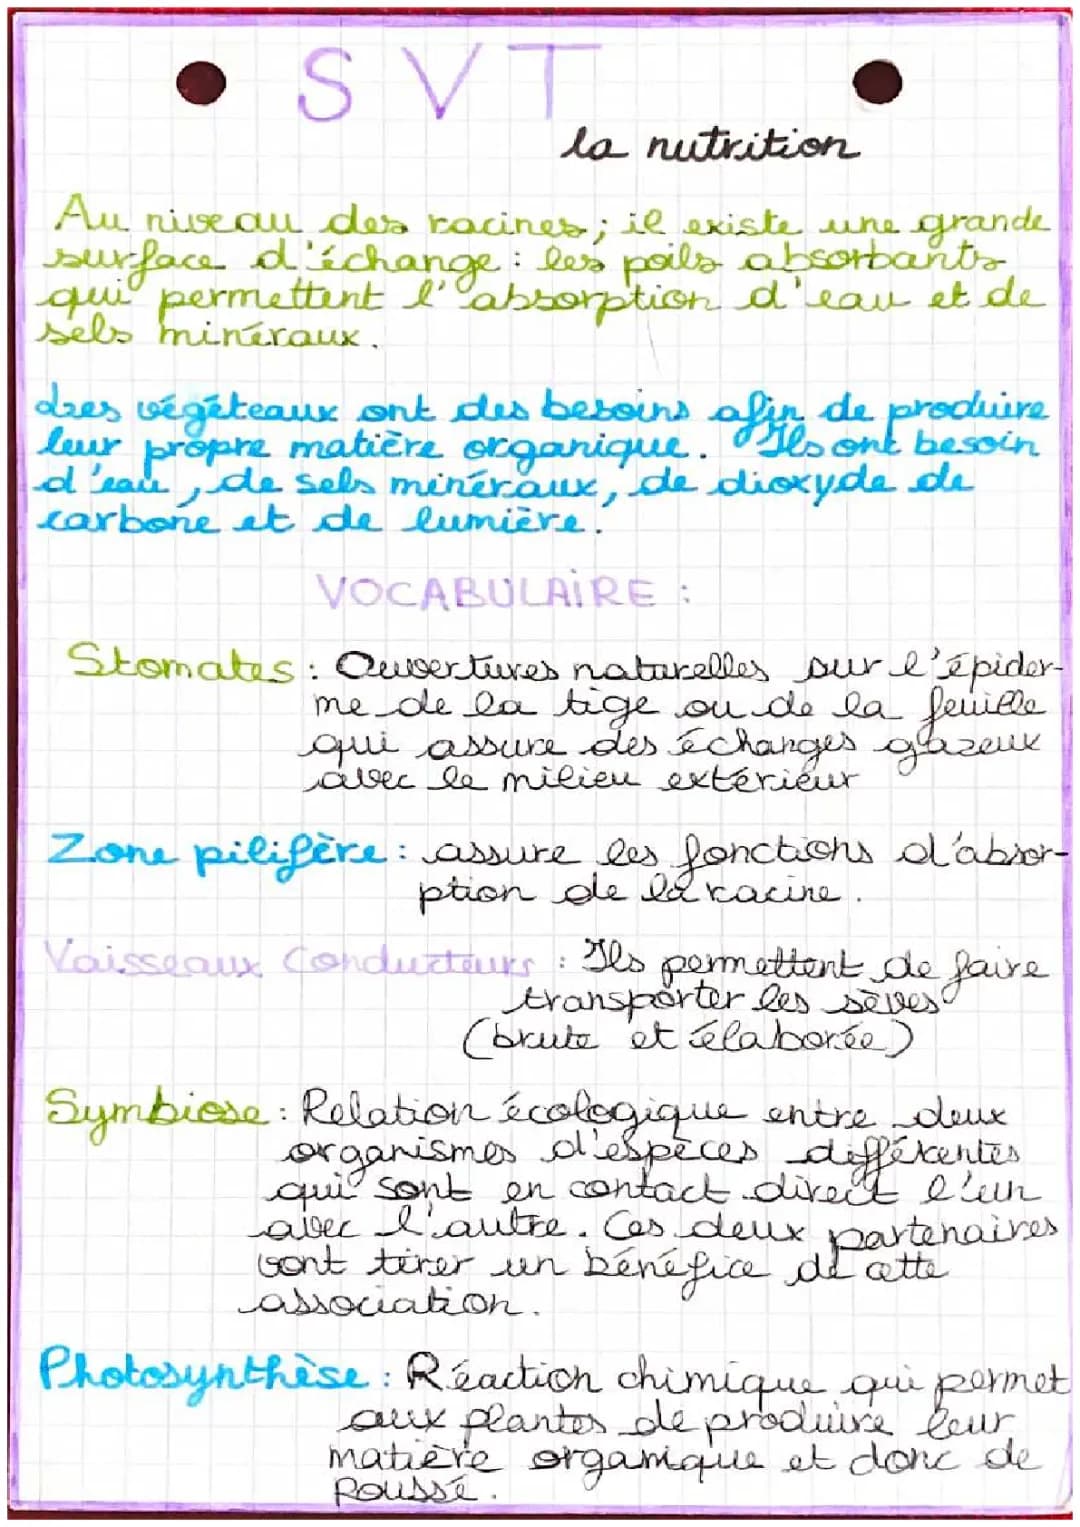 SVT
la nutrition
Au niveau des racines ; il existe une grande
surface d'échange : les poils absorbants
qui permettent l'absorption d'eau et de
sels minéraux.
Les végéteaux ont des besoins afin de produire
leur propre matière organique. Ils ont besoin
d'eau, de sels minéraux, de dioxyde de
carbone et de lumière.
VOCABULAIRE :
Stomates : Ouvertures naturelles sur l'épider-
me de la tige ou de la feuille
qui assure des échanges gazeux
avec le milieu extérieur
Zone pilifère : assure les fonctions d'absor-
ption de la racine.
Vaisseaux Conducteurs : Ils permettent de faire
transporter les sèves
(brute et élaborée)
Symbiose : Relation écologique entre deux
organismes d'espèces différentes
qui sont en contact direct l'un
avec l'autre. Ces deux partenaires
vont tirer un bénéfice de cette
association.
Photosynthèse : Réaction chimique qui permet
aux plantes de produire leur
matière organique et donc de
Poussé.